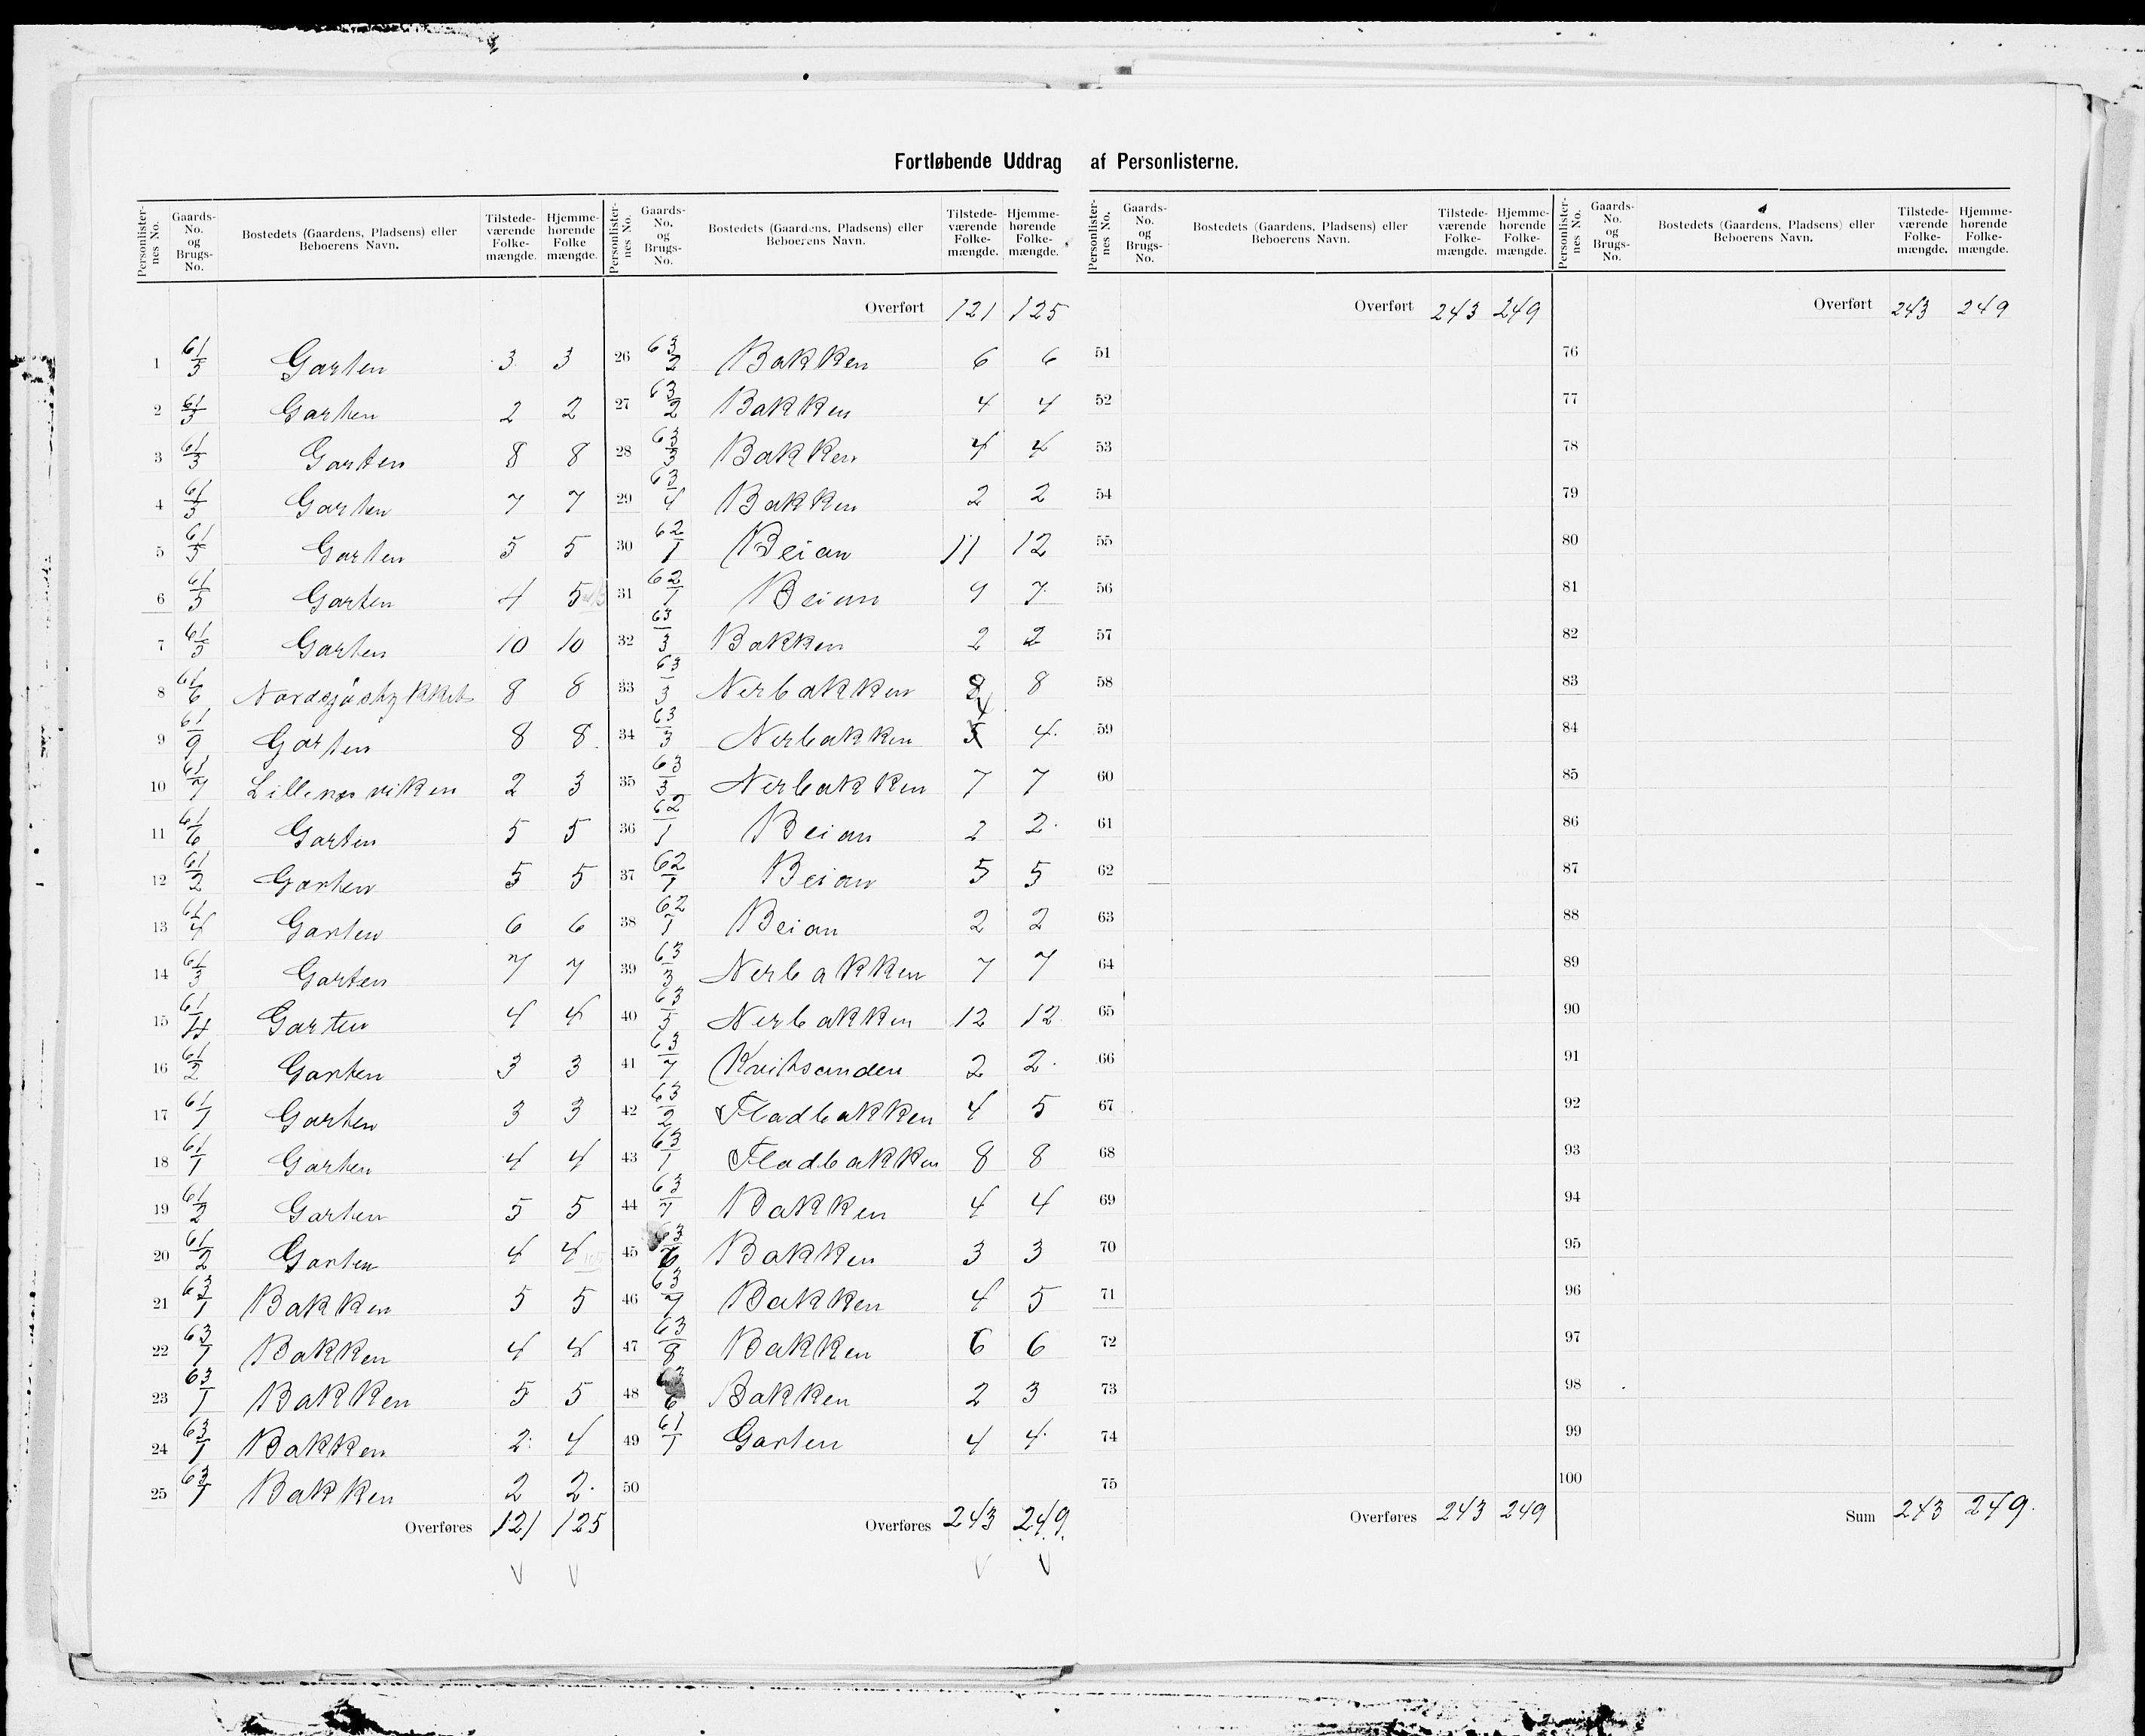 Fortløbende Uddrag af Personlisterne.
Personlisternes No. Gaards-No. og Brugs-No. Bostedets (Gaardens, Pladsens) eller Beboerens Navn. Tilstedeværende Folkemængde. Hjemmehørende Folkemængde.
1 61/3 Garten 3 3
2 61/3 Garten 2 2
3 61/3 Garten 8 8
4 61/3 Garten 7 7
5 61/5 Garten 5 5
6 61/5 Garten 4 5
7 61/5 Garten 10 10
8 61/6 8 8
9 61/9 Garten 8 8
10 61/7 2 3
11 61/6 Garten 5 5
12 61/2 Garten 5 5
13 61/4 Garten 6 6
14 61/3 Garten 7 7
15 61/4 Garten 4 4
16 61/2 Garten 3 3
17 61/1 Garten 3 3
18 61/1 Garten 4 4
19 61/2 Garten 5 5
20 61/2 Garten 4 4
21 63/1 Bakken 5 5
22 63/1 Bakken 4 4
23 63/1 Bakken 5 5
24 63/1 Bakken 2 4
25 63/1 Bakken 2 2
Overføres 121 125
Personlisternes No. Gaards-No. og Brugs-No. Bostedets (Gaardens, Pladsens) eller Beboerens Navn. Tilstedeværende Folkemængde. Hjemmehørende Folkemængde.
Overført 121 125
26 63/2 Bakken 6 6
27 63/2 Bakken 4 4
28 63/3 Bakken 4 4
29 63/4 Bakken 2 2
30 62/1 Beian 11 12
31 62/1 Beian 9 7
32 63/3 Bakken 2 2
33 63/3 Nerbakken 8 8
34 63/3 Nerbakken 4 4
35 63/3 Nerbakken 7 7
36 62/1 Beian 2 2
37 62/1 Beian 5 5
38 62/1 Beian 2 2
39 63/3 Nerbakken 7 7
40 63/5 Nerbakken 12 12
41 63/7 Kvitsanden 2 2
42 63/2 Fladbakken 4 5
43 63/1 Fladbakken 8 8
44 63/7 Bakken 4 4
45 63/6 Bakken 3 3
46 63/7 Bakken 4 5
47 63/8 Bakken 6 6
48 63/6 Bakken 2 3
49 61/1 Garten 4 4
50
Overføres 243 249
Personlisternes No. Gaards-No. og Brugs-No. Bostedets (Gaardens, Pladsens) eller Beboerens Navn. Tilstedeværende Folkemængde. Hjemmehørende Folkemængde.
Overført 243 249
51
52
53
54
55
56
57
58
59
60
61
62
63
64
65
66
67
68
69
70
71
72
73
74
75
Overføres 243 249
Personlisternes No. Gaards-No. og Brugs-No. Bostedets (Gaardens, Pladsens) eller Beboerens Navn. Tilstedeværende Folkemængde. Hjemmehørende Folkemængde.
Overført 243 249
76
77
78
79
80
81
82
83
84
85
86
87
88
89
90
91
92
93
94
95
96
97
98
99
100
Sum 243 249.